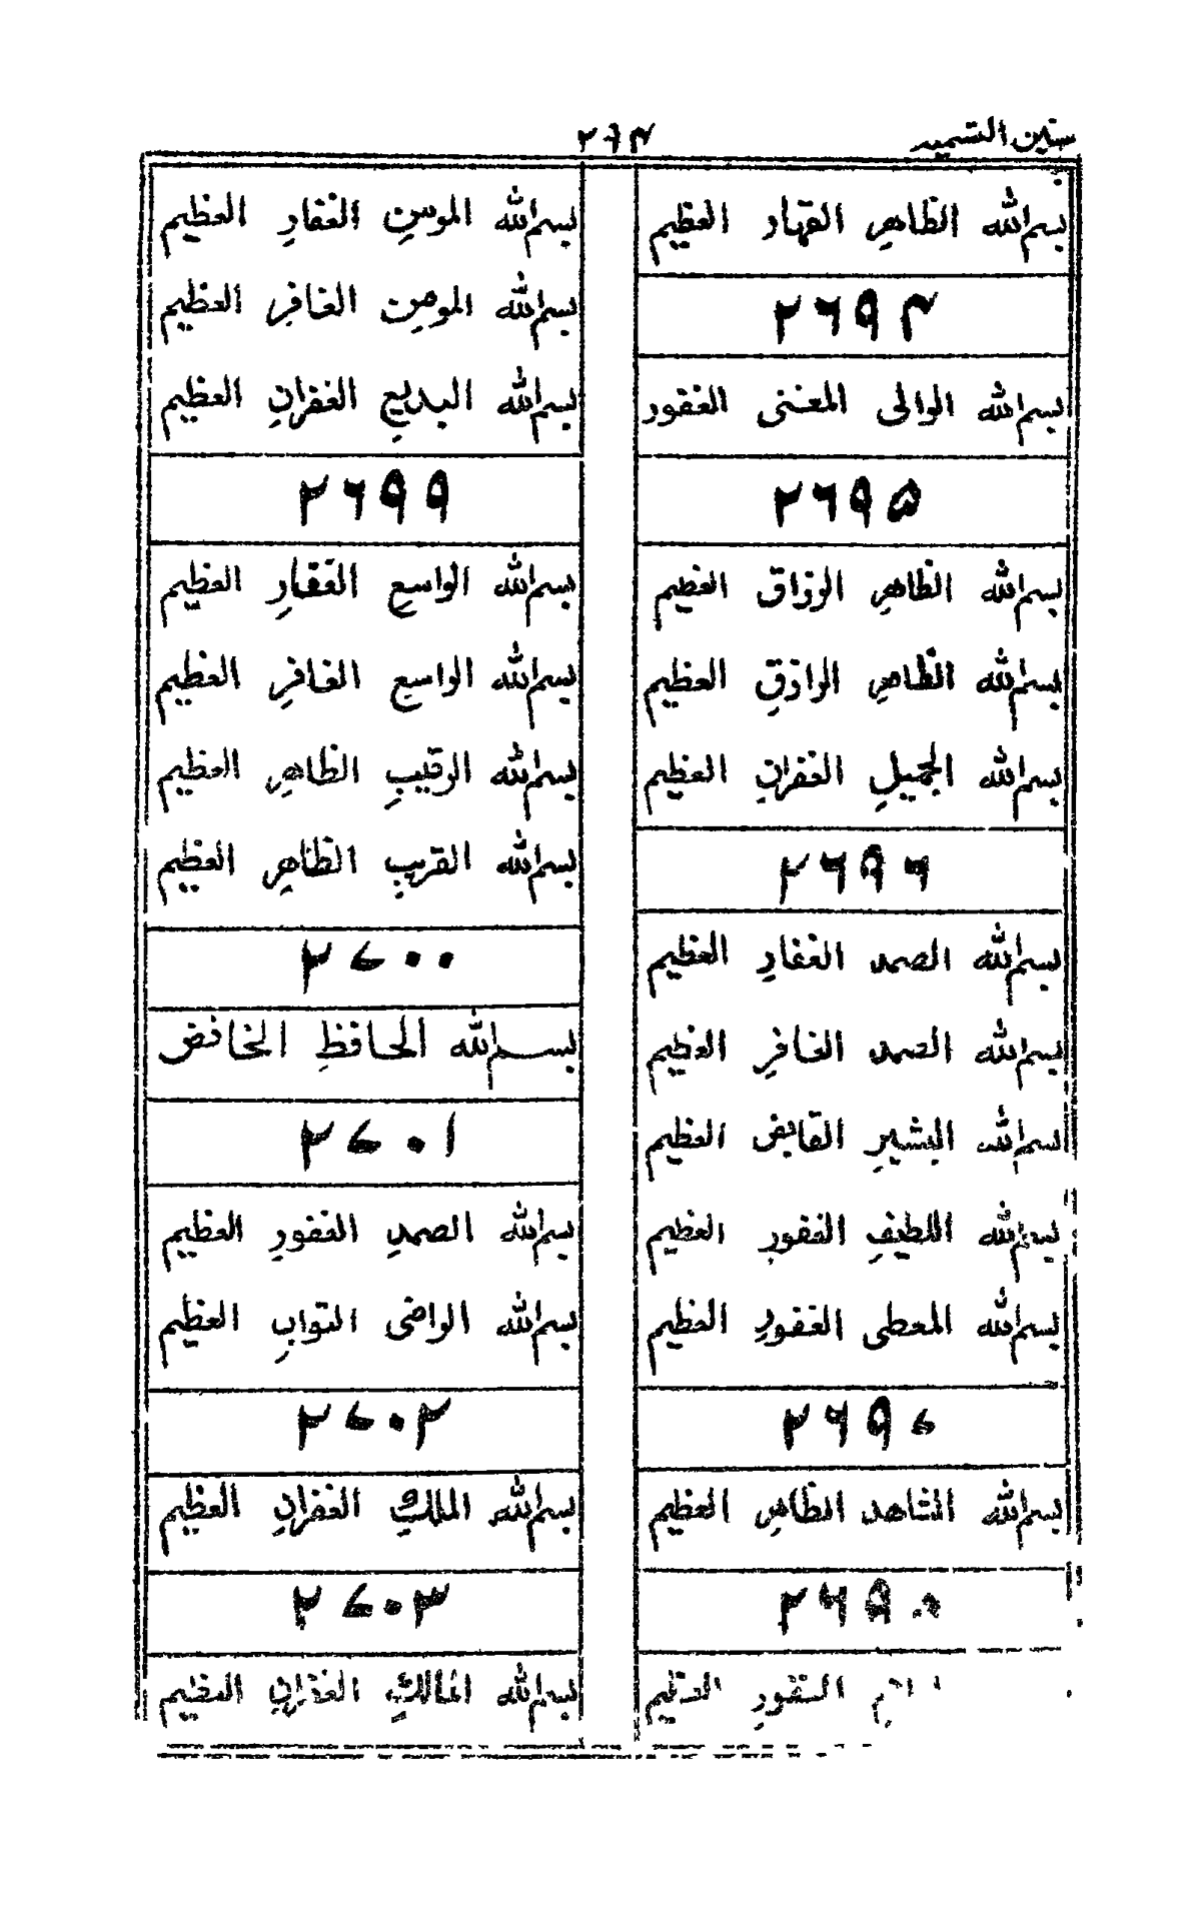 سنین التسمیہ
۲۶۴
بسم الله الظاهر القهار العظیم
۲۶۹۴
بسم الله الوالی المغنی الغفور
۲۶۹۵
بسم الله الظاهر الرزاق العظیم
بسم الله الظاهر الرازق العظیم
بسم الله الجمیل الغفران العظیم
۲۶۹۶
بسم الله الصمد الغفار العظیم
بسم الله الصمد الغافر العظیم
بسم الله البشیر القابض العظیم
بسم الله اللطیف الغفور العظیم
بسم الله المعطی الغفور العظیم
۲۶۹۷
بسم الله الشاهد الظاهر العظیم
۲۶۹۸
الغفور العظیم
بسم الله المومن الغفار العظیم
بسم الله المومن الغافر العظیم
بسم الله البدیع الغفران العظیم
۲۶۹۹
بسم الله الواسع الغفار العظیم
بسم الله الواسع الغافر العظیم
بسم الله الرقیب الظاهر العظیم
بسم الله القریب الظاهر العظیم
۲۷۰۰
بسم الله الحافظ الخافض
۲۷۰۱
بسم الله الصمد الغفور العظیم
بسم الله الراضی التواب العظیم
۲۷۰۲
بسم الله الملک الغفران العظیم
۲۷۰۳
بسم الله المالک الغفران العظیم